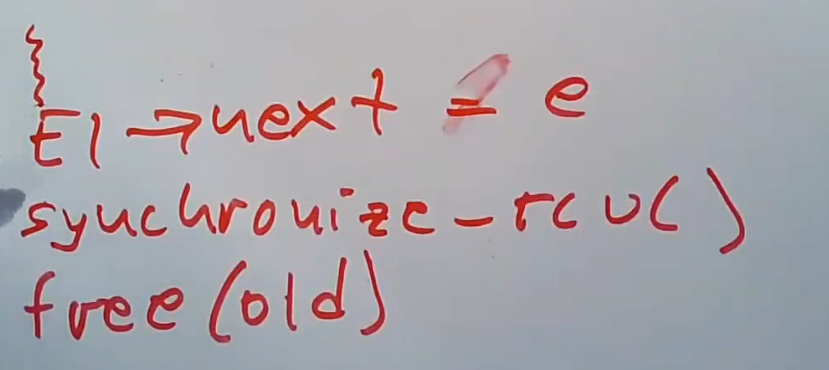 E1 →next = e
synchronize_rcu()
free(old)